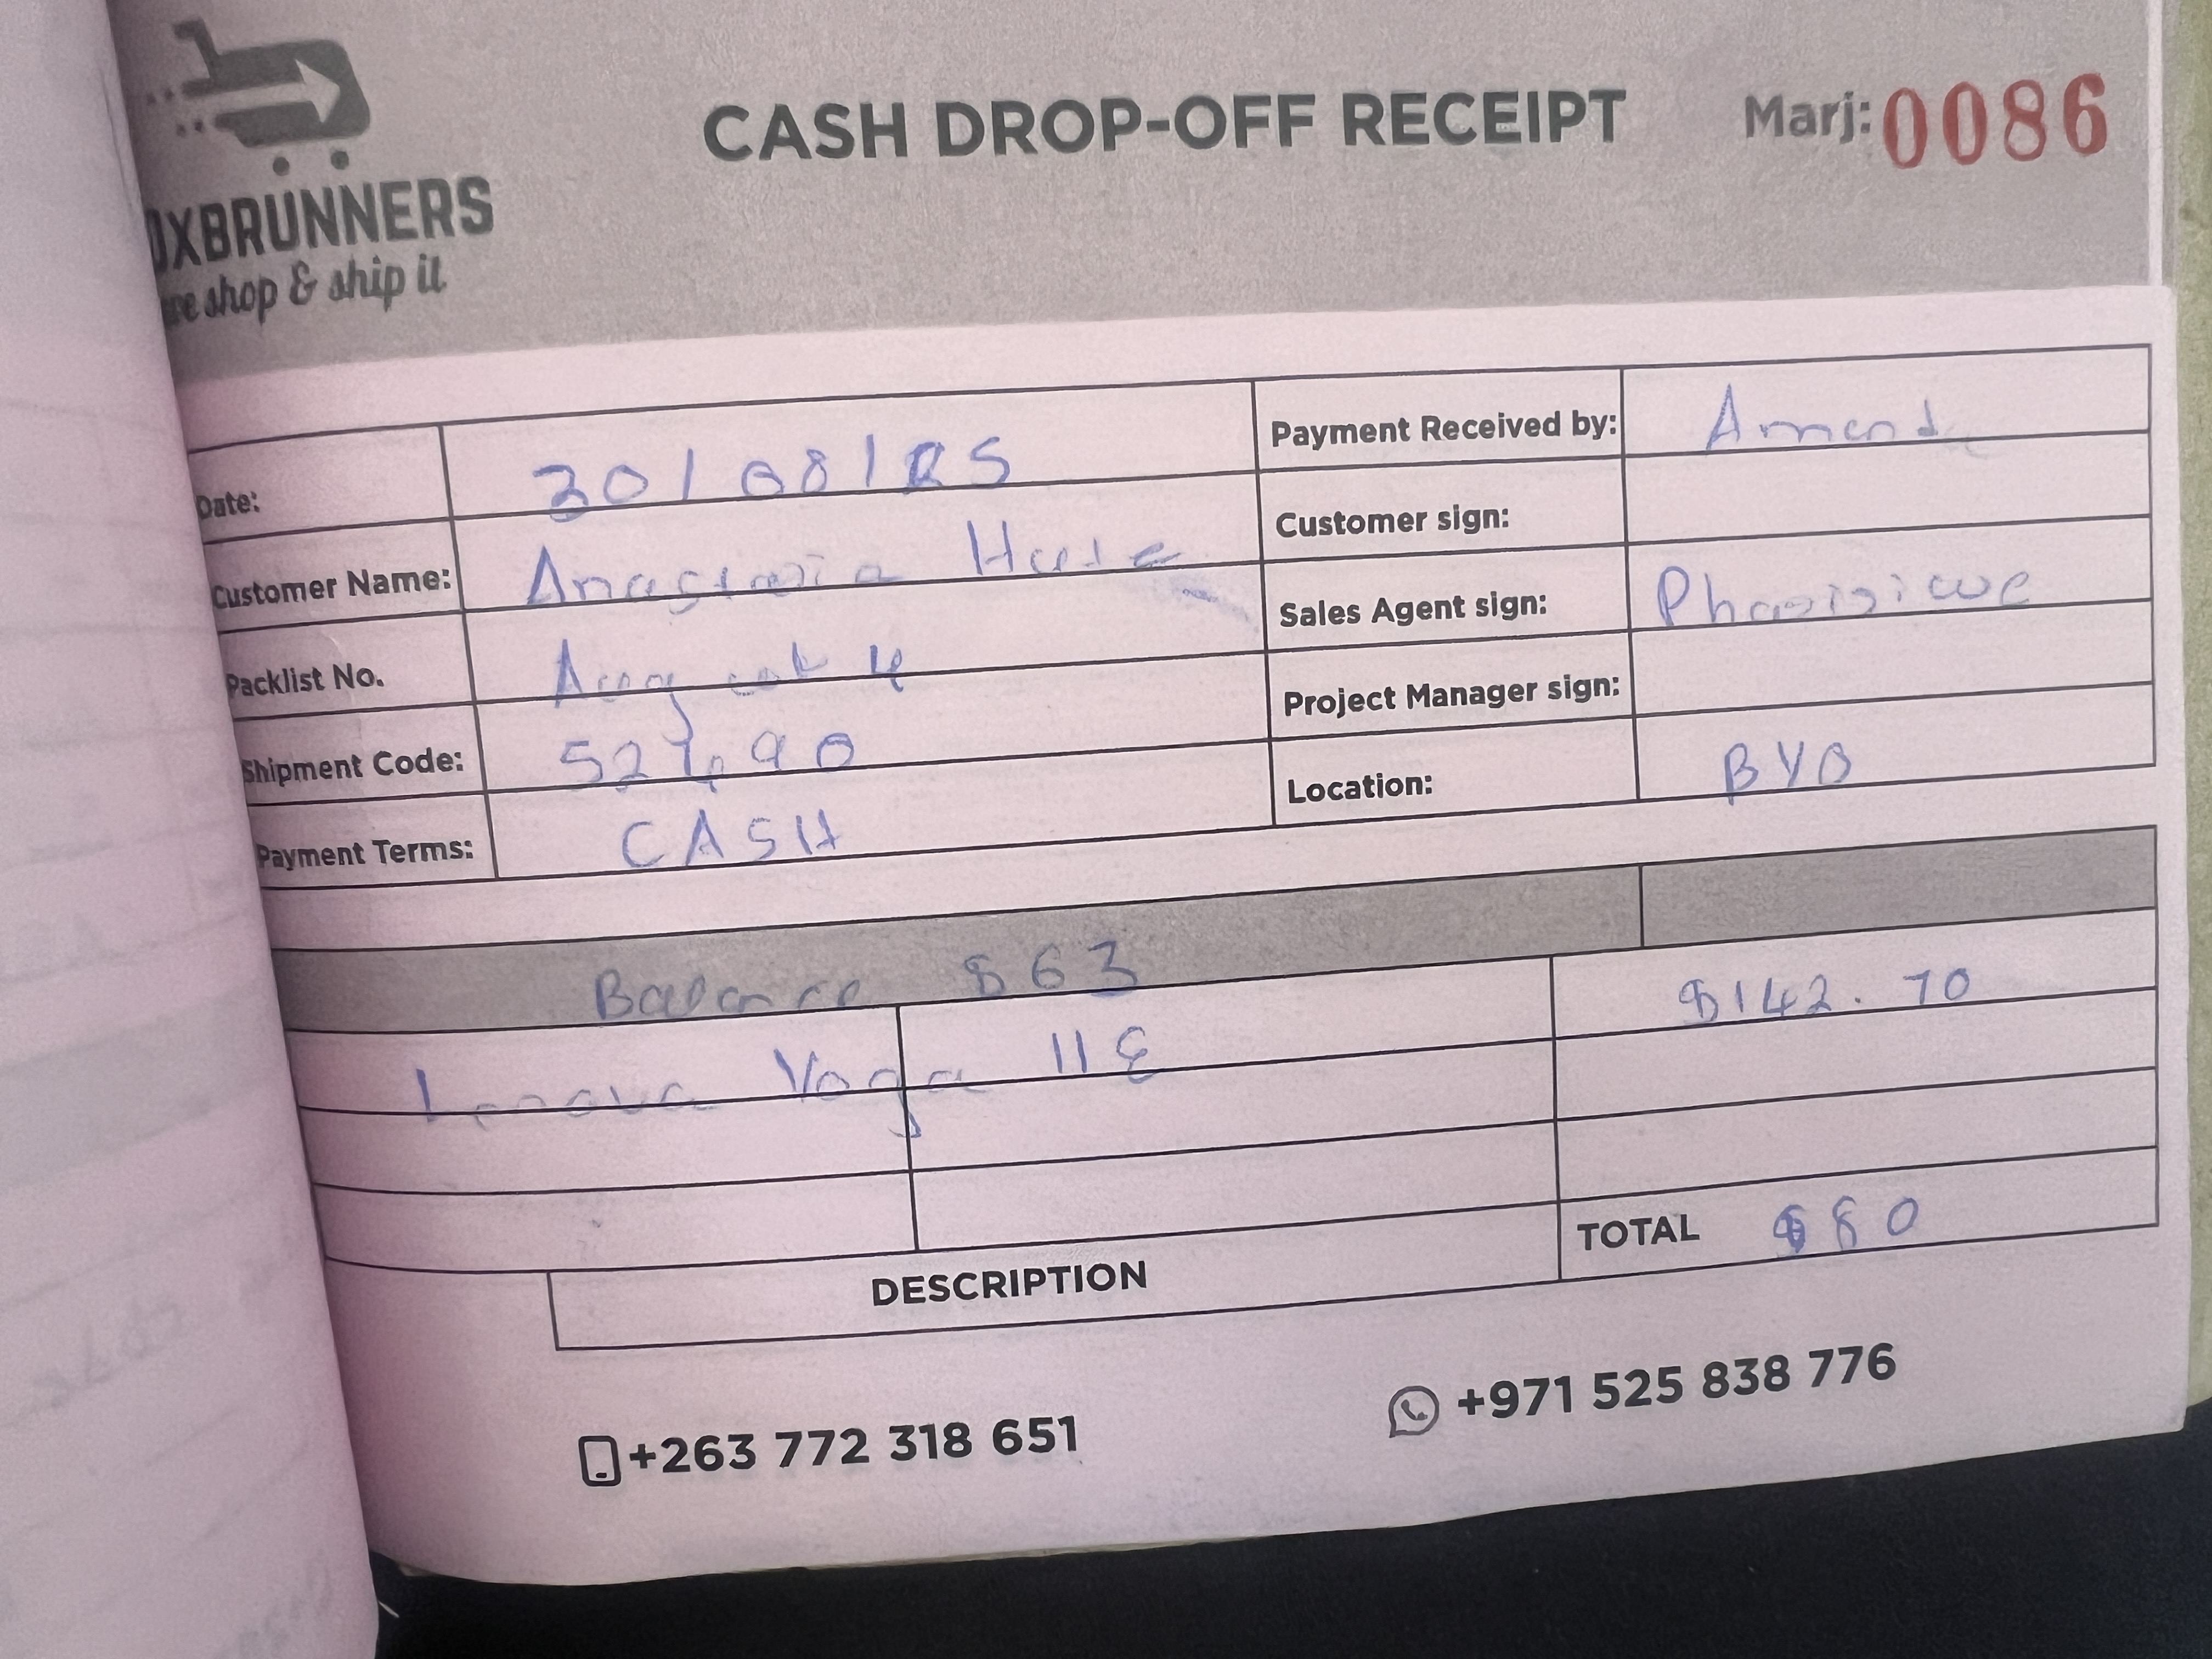 OXBRUNNERS
we shop & ship it
CASH DROP-OFF RECEIPT
Marj: 0086
Date: 30/08/25
Payment Received by:
Customer Name: Anastasia
Customer sign:
Packlist No. August 4
Sales Agent sign:
Shipment Code: 90
Project Manager sign:
Payment Terms: CASH
Location: BYO
Balance $63
Lenovo Yoga 11E $142.70
TOTAL $80
DESCRIPTION
+263 772 318 651
+971 525 838 776